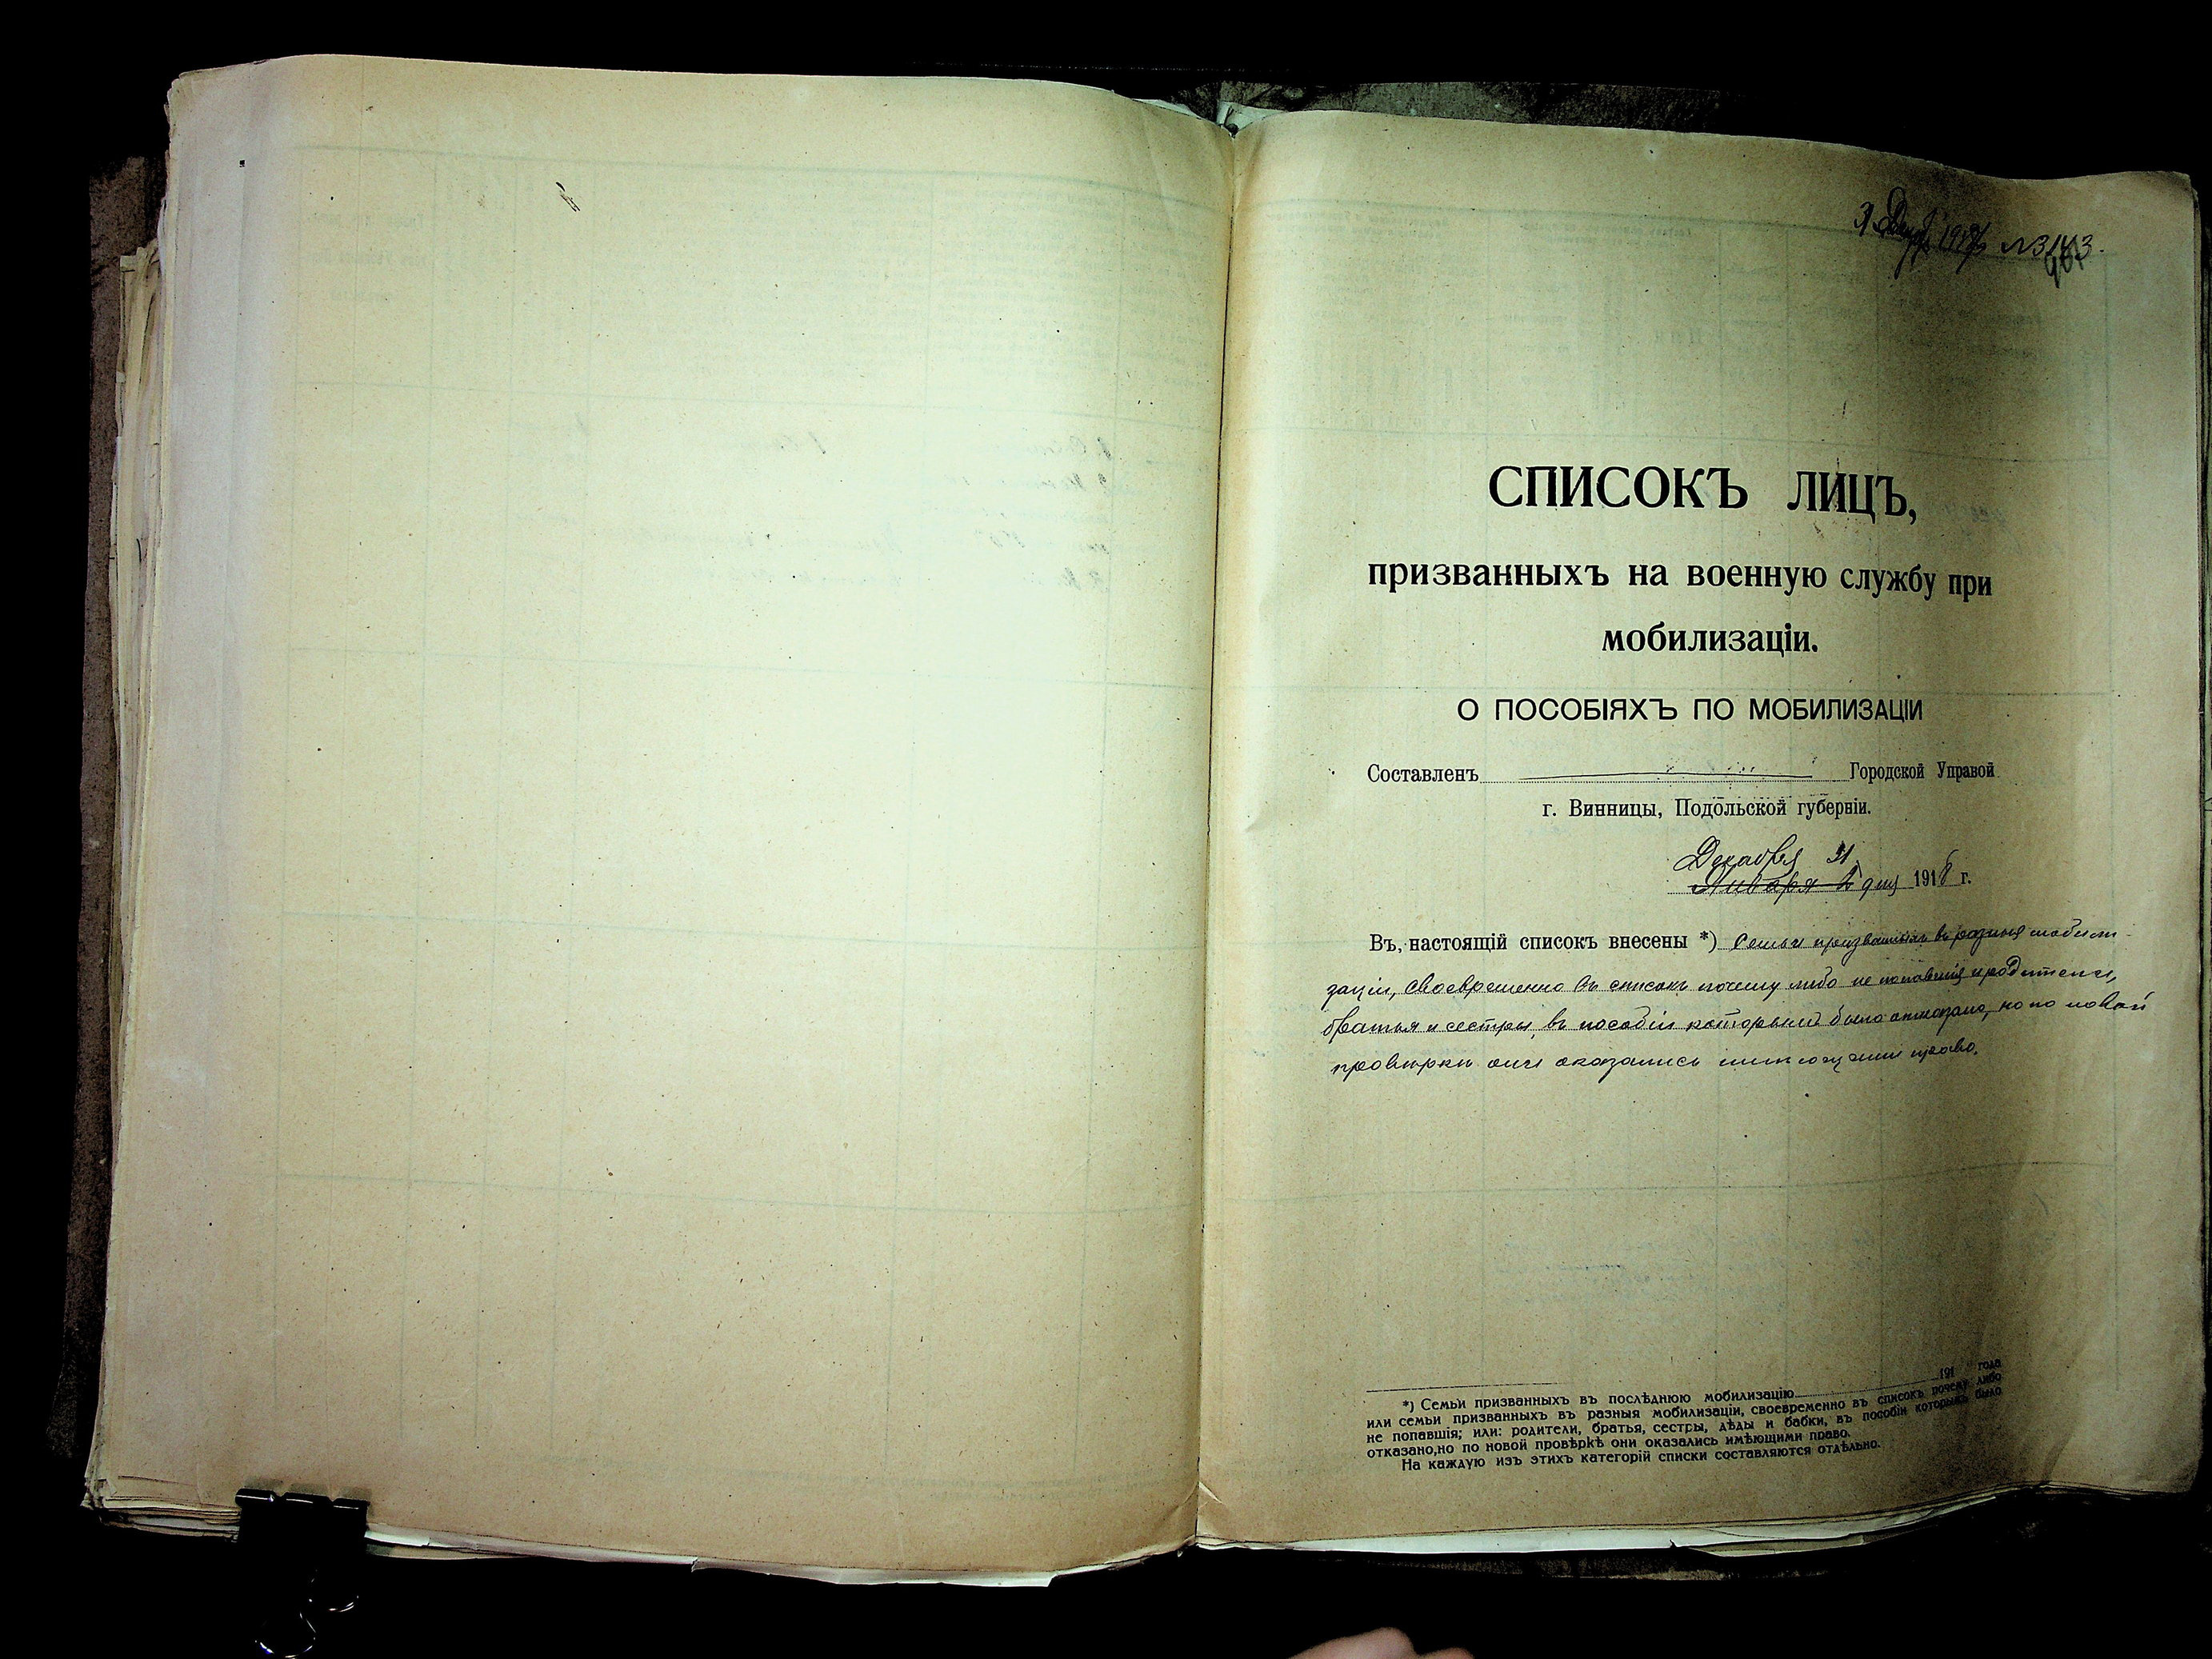 31 Декабр 191 № 3143.
СПИСОКЪ ЛИЦЪ,
призванныхъ на военную службу при
мобилизаціи.
О ПОСОБІЯХЪ ПО МОБИЛИЗАЦІИ
Составленъ Городской Управой
г. Винницы, Подольской губерніи.
Декабря 31
Января дня 1918 г.
Въ настоящій списокъ внесены *) Семьи призванныхъ въ разныя мобили-
заціи, своевременно въ списокъ почему либо не попавшія и родители,
братья и сестры, въ пособіи которымъ было отказано, но по новой
провѣркѣ они оказались имѣющими право.
*) Семьи призванныхъ въ послѣднюю мобилизацію 191 года
или семьи призванныхъ въ разныя мобилизаціи, своевременно въ списокъ почему либо
не попавшія; или: родители, братья, сестры, дѣды и бабки, въ пособіи которымъ было
отказано,но по новой провѣркѣ они оказались имѣющими право.
На каждую изъ этихъ категорій списки составляются отдѣльно.